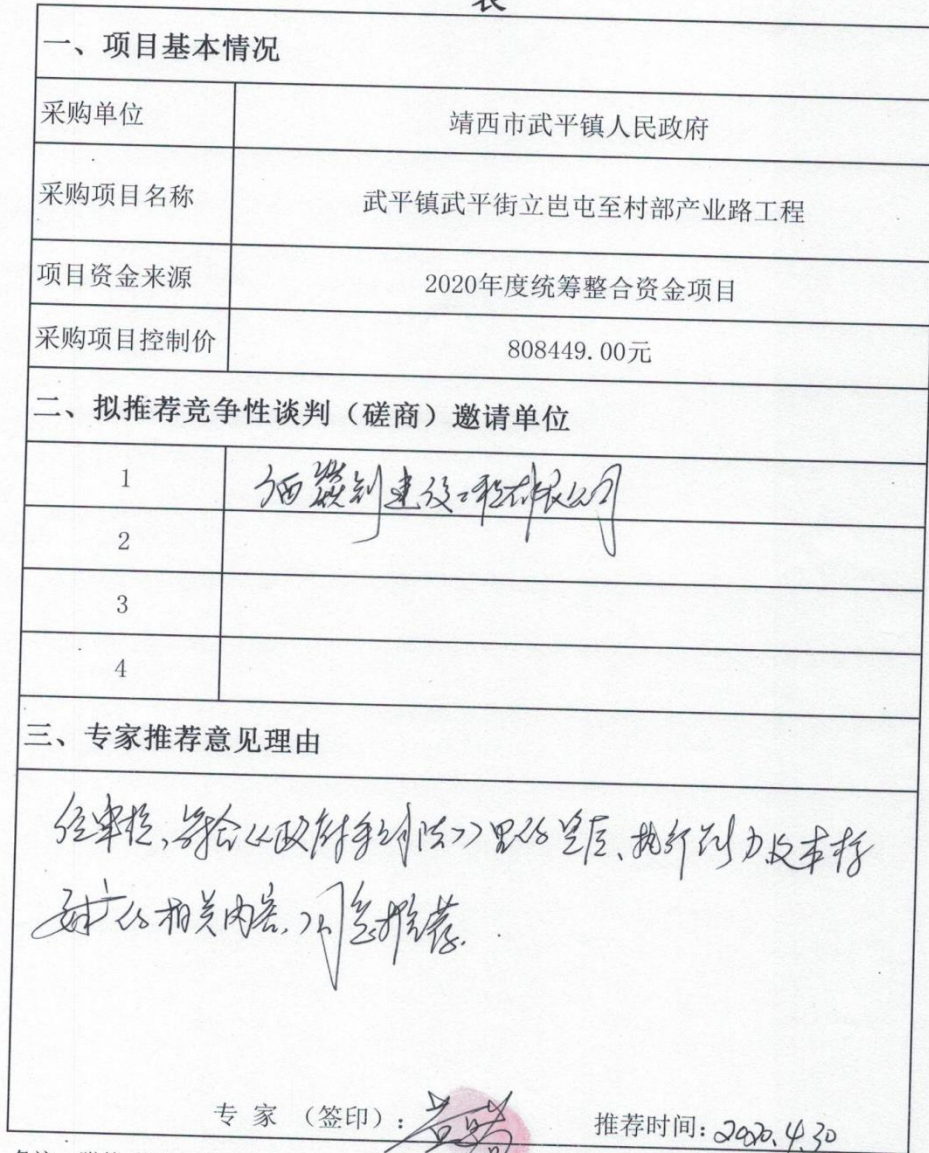 表
一、项目基本情况
采购单位 靖西市武平镇人民政府
采购项目名称 武平镇武平街立岜屯至村部产业路工程
项目资金来源 2020年度统筹整合资金项目
采购项目控制价 808449.00元
二、拟推荐竞争性谈判（磋商）邀请单位
1 建设工程有限公司
2
3
4
三、专家推荐意见理由
经审核,符合《政府采购法》
的相关内容,同意推荐.
专 家 （签印）: 推荐时间: 2020.4.30